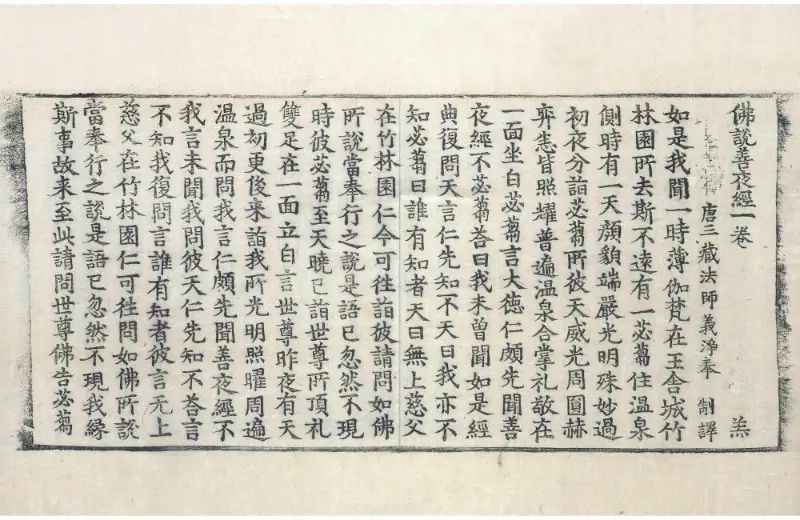 佛說善夜經一卷 羔
唐三藏法師義淨奉 制譯
如是我聞一時薄伽梵在王舍城竹
林園所去斯不遠有一苾蒭住溫泉
側時有一天顏貌端嚴光明殊妙過
初夜分詣苾蒭所彼天威光周圓赫
弈悉皆照耀普遍溫泉合掌礼敬在
一面坐白苾蒭言大德仁頗先聞善
夜經不苾蒭荅曰我未曾聞如是經
典復問天言仁先知不天曰我亦不
知苾蒭曰誰有知者天曰無上慈父
在竹林園仁今可往詣彼請問如佛
所說當奉行之說是語已忽然不現
時彼苾蒭至天曉已詣世尊所頂礼
雙足在一面立白言世尊昨夜有天
過初更後来詣我所光明照曜周遍
溫泉而問我言仁頗先聞善夜經不
我言未聞我問彼天仁先知不荅言
不知我復問言誰有知者彼言无上
慈父在竹林園仁可往問如佛所說
當奉行之說是語已忽然不現我緣
斯事故来至此請問世尊佛告苾蒭